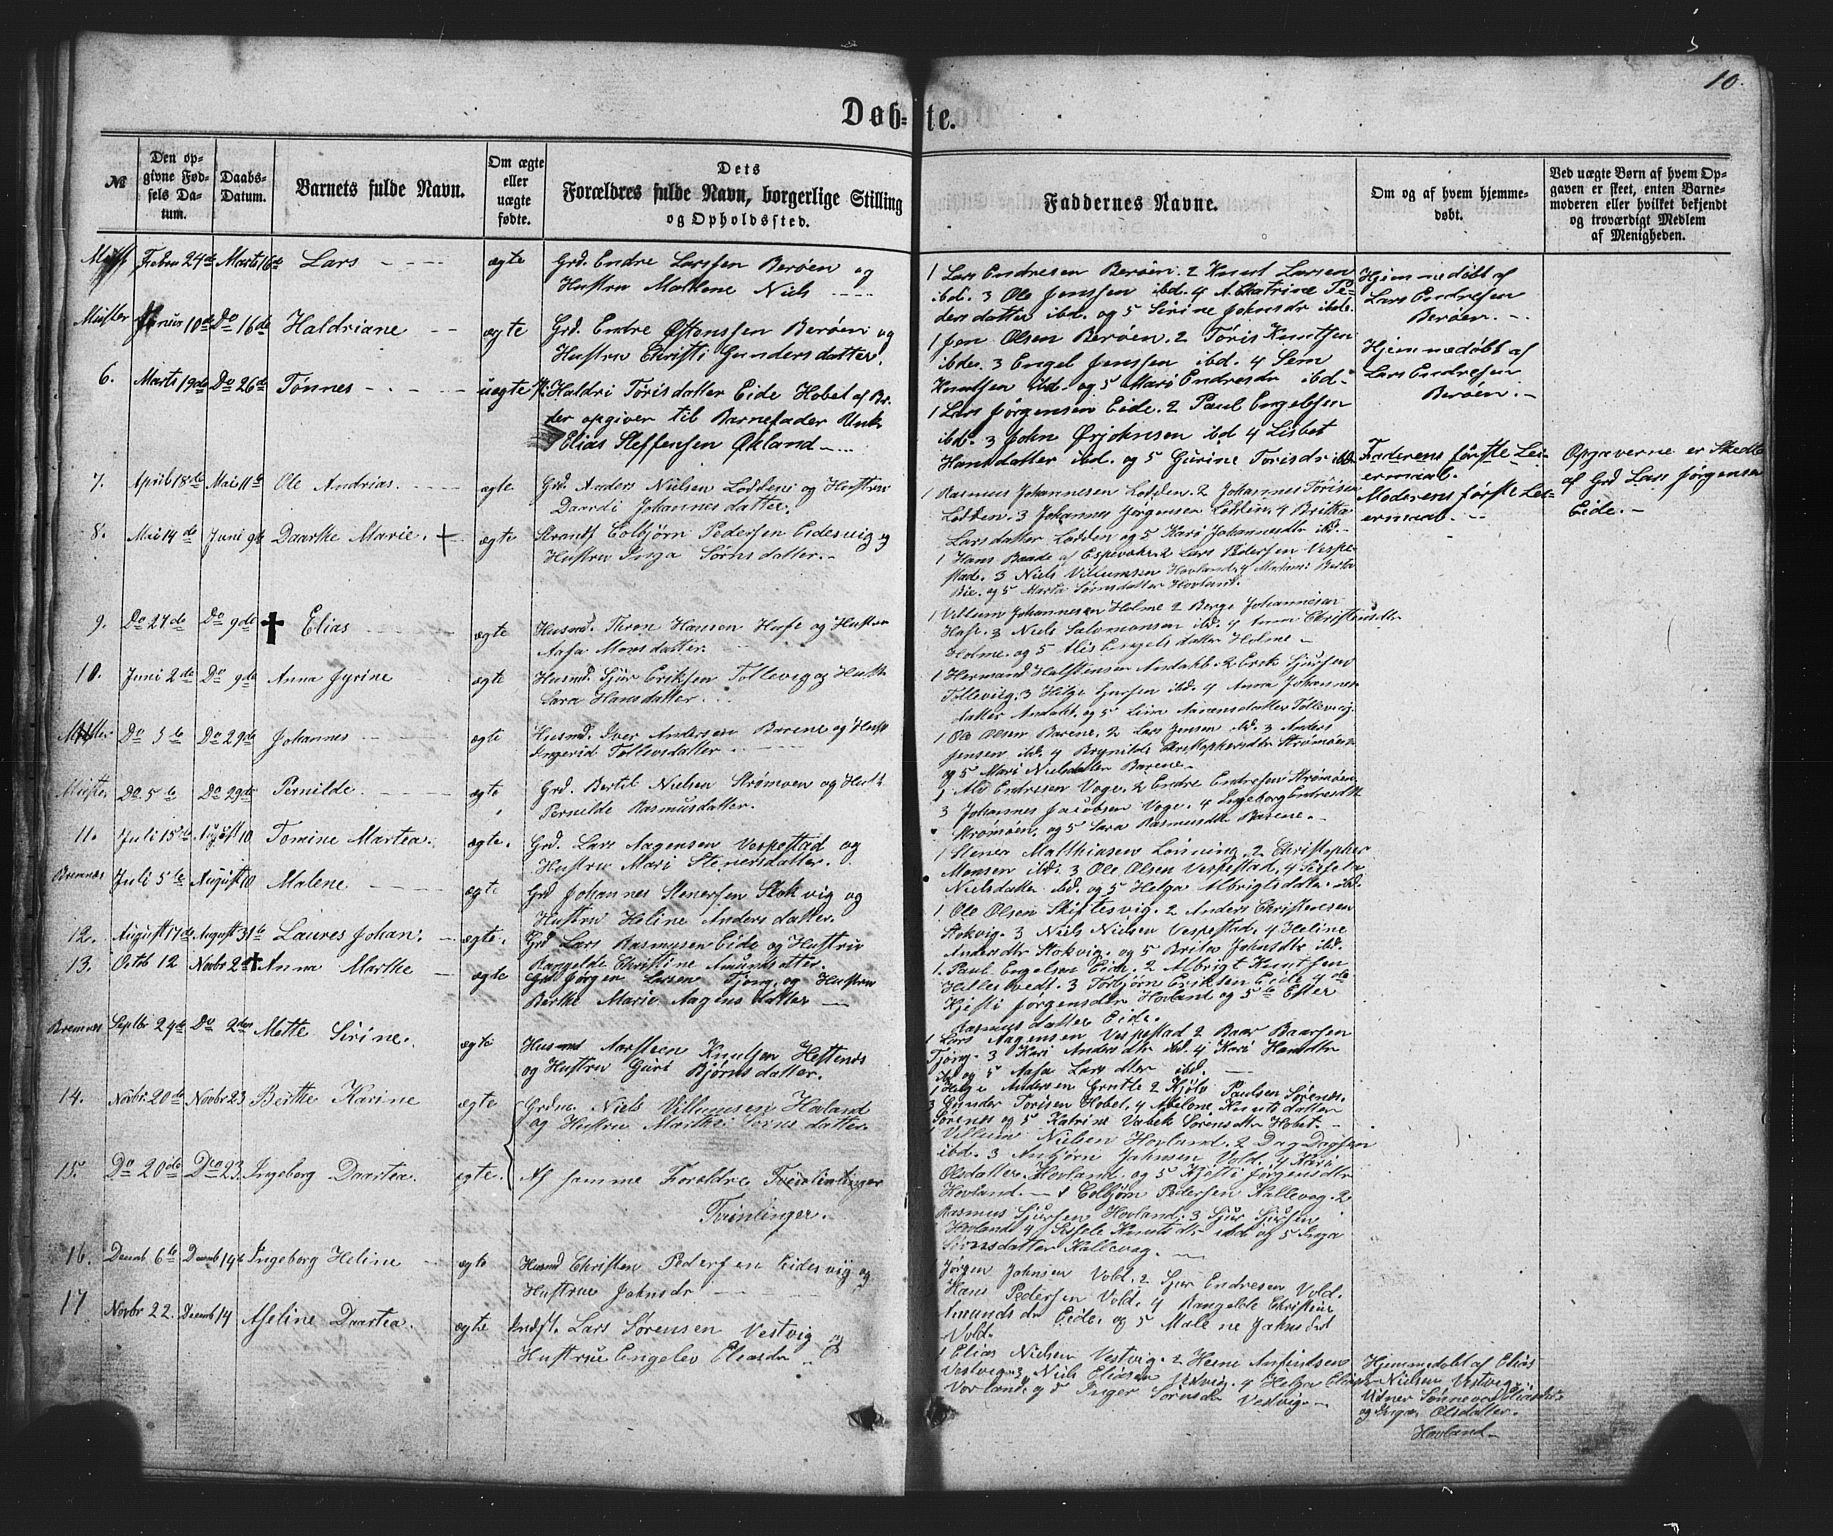 10.
Døb-te.
№
Den opgivne Fødsels Datum.
Daabs-Datum.
Barnets fulde Navn.
Om ægte eller uægte fødte.
Dets Forældres fulde Navn, borgerlige Stilling og Opholdssted.
Faddernes Navne.
Om og af hvem hjemmedøbt.
Ved uægte Børn af hvem Opgaven er skeet, enten Barnemoderen eller hvilket bekjendt og troværdigt Medlem af Menigheden.
24de Marts 16de Lars ægte Grd. Endre Larssen Berøen og
Hustru Malene Niels
1 Lars Endresen Berøen. 2 Knut Larsen
ibd. 3 Ole Jenssen ibd. 4 A. Catrine Pe-
dersdatter ibd. og 5 Sirine Johnsdr ibd.
Hjemmedøbt af
Lars Endresen
Berøen.
10de Do 16de Haldriane ægte Grd. Endre Berøen og
Hustru Christi Gundersdatter
1 Jon Olsen Berøen. 2 Tøris Knutsen
ibd. 3 Engel Jenssen ibd. 4 Sem
Knutsen ibd. og 5 Mari Endresdr ibd.
Hjemmedøbt af
Lars Endresen
Berøen.
6. Marts 19de Do 26de Tønnes uægte Haldri Torisdatter Eide Hobet af
der opgiver til Barnefader Unk.
Elias Steffensen Økland
1 Lars Jørgensen Eide. 2 Paul Engelsen
ibd. 3 John Ørjohnsen ibd 4 Lisbet
Hansdatter ibd. og 5 Gurine Torisdr ibd.
Faderens første Lei-
ermaal.
Moderens første Lei-
ermaal.
Opgaverne er Skedte
af Grd Lars Jørgensen
Eide.
7. April 18de Mai 11te Ole Andrias ægte Grd. Anders Nielsen Lodden og Hustru
Daardi Johannesdatter.
1 Rasmus Johannesen Lodden. 2 Johannes Torisen
Lodden. 3 Johannes Jørgensen Lodden. 4 Britha
Larsdatter Lodden og 5 Kari Johannesdtr ibd.
8. Mai 14de Juni 9de Daarthe Marie. + ægte Strands. Colbjørn Pedersen Eidesvig og
Hustru Inga Sørnsdatter.
1 Hans Baade af Espevahr. 2 Lars Pedersen Vespe-
stad. 3 Niels Villumsen Hovland. 4
og 5 Marta Sørnsdatter Hovland.
9. Do 27de Do 9de ✝ Elias ægte Husmd. Thron Hansen Hufe og Hustru
Aasa Monsdatter.
1 Villum Johannesen Holme 2 Børge Johannesen
Hufe. 3 Niels Salomonsen ibd. 4 Anna Christensdtr
Holme. og 5 Alis Engelsdatter Holme
10. Juni 2de Do 9de Anna Gyrine ægte Husmd. Sjur Eriksen Tollevig og Hustr
Sara Hansdatter.
1 Hermand Halstensen Andahl. 2 Erik Sjursen
Tollevig. 3 Helge Sjursen ibd. 4 Anna Johannes-
datter Andahl. og 5 Lina Tollevig
Do 5te Do 29de Johannes ægte Husmd. Iver Andersen Barene og Hustr
Ingerid Tollevsdatter
1 Ole Olsen Barene. 2 Lars Jensen ibd. 3 Anders
Jensen ibd. 4 Brynilda Christophersdtr Strømøen
og 5 Mari Nielsdatter Barene.
Do 5te Do 29de Pernilde ægte Grd. Bertil Nielsen Strømøen og Hustr
Pernilde Rasmusdatter.
1 Endresen Voge. 2 Endre Endresen Strømøen.
3 Johannes Jacobsen Voge. 4 Ingeborg Endresdtr
Strømøen. og 5 Sara Rasmusdtr Barene.
11. Juli 15de August 10 Tomine Martea. ægte. Grd. Lars Aagensen Vespestad og
Hustru Mari Stenersdatter.
1 Stener Matthiasen Lønning. 2 Christopher
Monsen ibd. 3 Ole Olsen Vespestad. 4
Nielsdatter ibd. og 5 Helga Albrigtsdatter ibd.
Bremnes Juli 5te August 10 Malene ægte Grd Johannes Stenersen Stokvig og
Hustru Heline Andersdatter.
1. Ole Olsen Skiftesvig. 2 Anders Christensen
Stokvig. 3 Niels Nielsen Vespestad. 4 Heline
Andersdtr Stokvig. og 5 Brita Johnsdtr ibd.
12. August 17de August 31te Laures Johan. ægte. Grd Lars Rasmusen Eide og Hustru
Rangelde Christine Amundsdatter.
1. Paul Engelsen Eide. 2 Albrigt Knutsen
Hillesvedt. 3 Torbjørn Eriksen Eide 4de
Kjesti Jørgensdtr Hovland og 5te Ester
Rasmusdatter Eide.
13. Octob 12 Novbr 2 ✝ Anna Marthe ægte Grd Jørgen Larsen Tjong. og Hustru
Berthe Marie Aagensdatter
1 Lars Aagensen Vespestad 2 Baar Baarsen
Tjong. 3 Kari Andersdtr ibd. 4 Kari Hansdtr
ibd og 5 Aasa Larsdtter ibd.
Bremnes Septbr 24de Do 2den Mette Sirine. ægte Husmd Aarsteen Knutsen Hettenes
og Hustru Guri Bjørnsdatter.
1 Helge Andersen Grutle 2 Kjøln Paulsen Sørenes.
3 Gunder Torisen Hobet. 4 Abelone Knutsdatter
Sørenes og 5 Katrine Vabek Sørensdtr Hobet.
14. Novbr. 20de Novbr 23 Berthe Karine ægte Grdm. Niels Villumsen Hovland
og Hustru Marthe Sørnsdatter.
1 Villum Nielsen Hovland. 2 Dag Dagsen
ibd. 3 Anbjørn Johnsen Vold. 4 Kari
Olsdatter Hovland. og 5 Kjesti Jørgensdtr
Hovland.
15. Do 20de Do 23. Ingeborg Daartea. ægte. Af samme Forældre
Tvinlinger.
1 Colbjørn Pedersen Kallevag. 2
Rasmus Sjursen Hovland. 3 Sjur Sjursen
Hovland 4 Sissele Knutsdtr ibd og 5 Inga
Sørnsdatter Kallevig.
16. Decmb 6te Decmb 14 Ingeborg Heline ægte Husmd Christen Pedersen Eidesvig og
Hustrue Johnsdr
Jørgen Johnsen Vold. 2 Sjur Endresen Vold.
Hans Pedersen Vold. 4 Rangelde Christine
Amundsdtr Eide. og 5 Malene Johnsdtr
Vold.
17 Novbr 22. Decmb 14 Aseline Daartea. ægte Indst. Lars Sørensen Vestvig og
Hustrue Engelev Eliasdr
1 Elias Nielsen Vestvig. 2
Vestvig. 3 Niels Eliasen Vestvig. 4 Helga
og 5 Inger Sørnsdr Vestvig.
Hjemmedøbt af Elias
Nielsen Vestvig.
Vidner
og Olsdatter.
Hovland